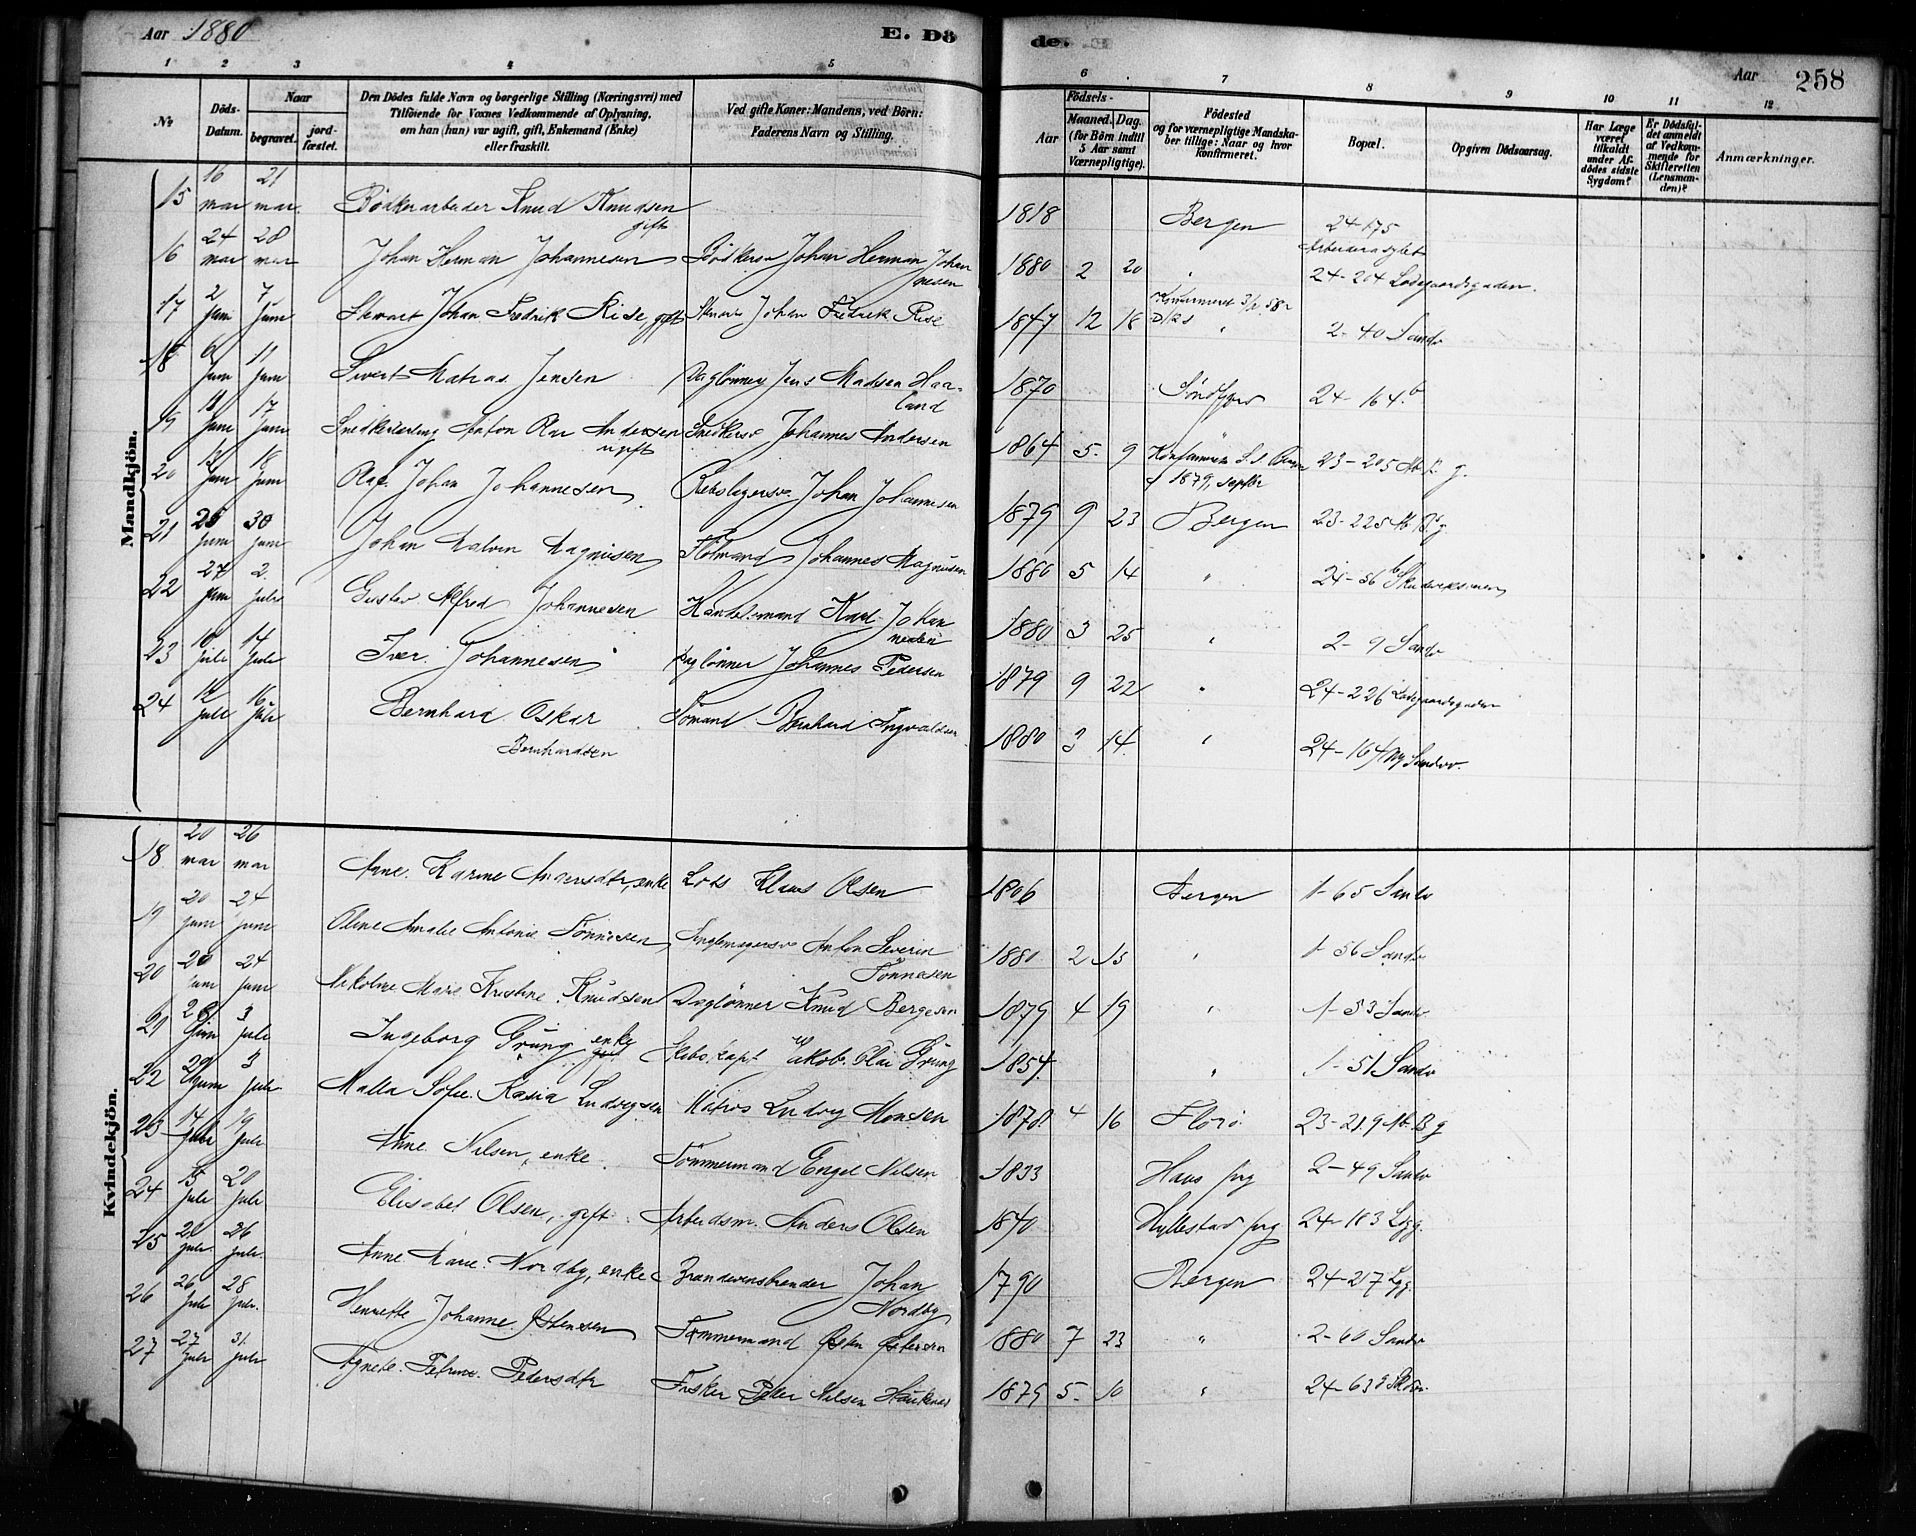 Aar 1880 E. Dö
de. Aar 258
1 2 3 4 5 6 7 8 9 10 11 12
No
Döds-Datum.
Naar
begravet.
jord-fæstet.
Den Dödes fulde Navn og borgerlige Stilling (Næringsvei) med
Tilföiende for Voxnes Vedkommende af Oplysning,
om han (hun) var ugift, gift, Enkemand (Enke)
eller fraskilt.
Ved gifte Koner: Mandens, ved Börn:
Faderens Navn og Stilling.
Födsels-
Aar
Maaned. Dag.
(for Börn indtil
5 Aar samt
Værnepligtige).
Födested
og for værnepligtige Mandska-
ber tillige: Naar og hvor
konfirmeret.
Bopæl.
Opgiven Dödsaarsag.
Har Læge
været
tilkaldt
under Af-
dödes sidste
Sygdom?
Er Dödsfal-
det anmeldt
af Vedkom-
mende for
Skifteretten
(Lensman-
den)?
Anmærkninger.
Mandkjön.
15 16 mar 21 mar Bödkerarbeider Knud Knudsen gift 1818 Bergen 24-175 Arbeiderasylet
16 24 mar 28 mar Johan Herman Johannesen Bödkersv Johan Herman Johannesen 1880 2 20 " 24-204 Ladegaardsgaden
17 2 Juni 7 Juni Johan Fredrik Rise, gift Johan Fredrik Rise 1847 12 18 " 2-40 Sandv
18 6 Juni 11 Juni Sivert Matias Jensen Daglönner Jens Madsen Haaland 1870 Söndfjord 24-164 b
19 11 Juni 17 Juni Anton Andersen ugift Snedkersv Johannes Andersen 1864 5 9 1879 23-205
20 13 Juni 18 Juni Olaf Johan Johannesen Rebslagersv. Johan Johannesen 1879 9 23 Bergen 23-225
21 25 Juni 30 Juni Johan Magnusen Johannes Magnusen 1880 5 14 " 24-56
22 27 Juni 2 Juli Gustav Alfred Johannesen Handelsmand Karl Johannesen 1880 3 25 " 2-9 Sandv
23 10 Juli 14 Juli Iver Johannesen Daglönner Johannes Pedersen 1879 9 22 " 24-226 Ladegaardsgaden
24 12 Juli 16 Juli Bernhard Oskar Bernhardsen Sömand Bernhard Ingvaldsen 1880 3 14 " 24-164 Sandv.
Kvindekjön.
18 20 mar 26 mar Anne Karine Andersdtr, enke Lods Klaus Olsen 1806 Bergen 1-65 Sandv
19 20 Juni 24 Juni Oline Amalie Antonie Tönnesen Anton Severin Tönnesen 1880 2 15 " 1-56 Sandv
20 20 Juni 24 Juni Nikoline Marie Kristine Knudsen Daglönner Knud Bergesen 1879 4 19 " 1-53 Sandv
21 28 Juni 3 Juli Ingeborg Grung enke Skibskapt Jakob Olai Grung 1854 " 1-51 Sandv
22 29 Juni 3 Juli Malla Sofie Kasia Ludvigsen Matros Ludvig Monsen 1878 4 16 Florö 23-219
23 14 Juli 19 Juli Anne Nilsen, enke Tömmermand Engel Nilsen 1833 Haus prg 2-49 Sandv
24 15 Juli 20 Juli Elisabet Olsen, gift Arbeidsm. Anders Olsen 1840 Hyllestad prg 24-183 Lgg.
25 20 Juli 26 Juli Anne Marie Nordby, enke Brændevinsbrænder Johan Nordby 1790 Bergen 24-217 Lgg.
26 26 Juli 28 Juli Henriette Johanne Östensen Tömmermand Östen Östensen 1880 7 23 " 2-60 Sandv
27 27 Juli 31 Juli Agnete Petrine Pedersdtr Fisker Peder Nilsen Haukenæs 1879 5 10 " 24-63